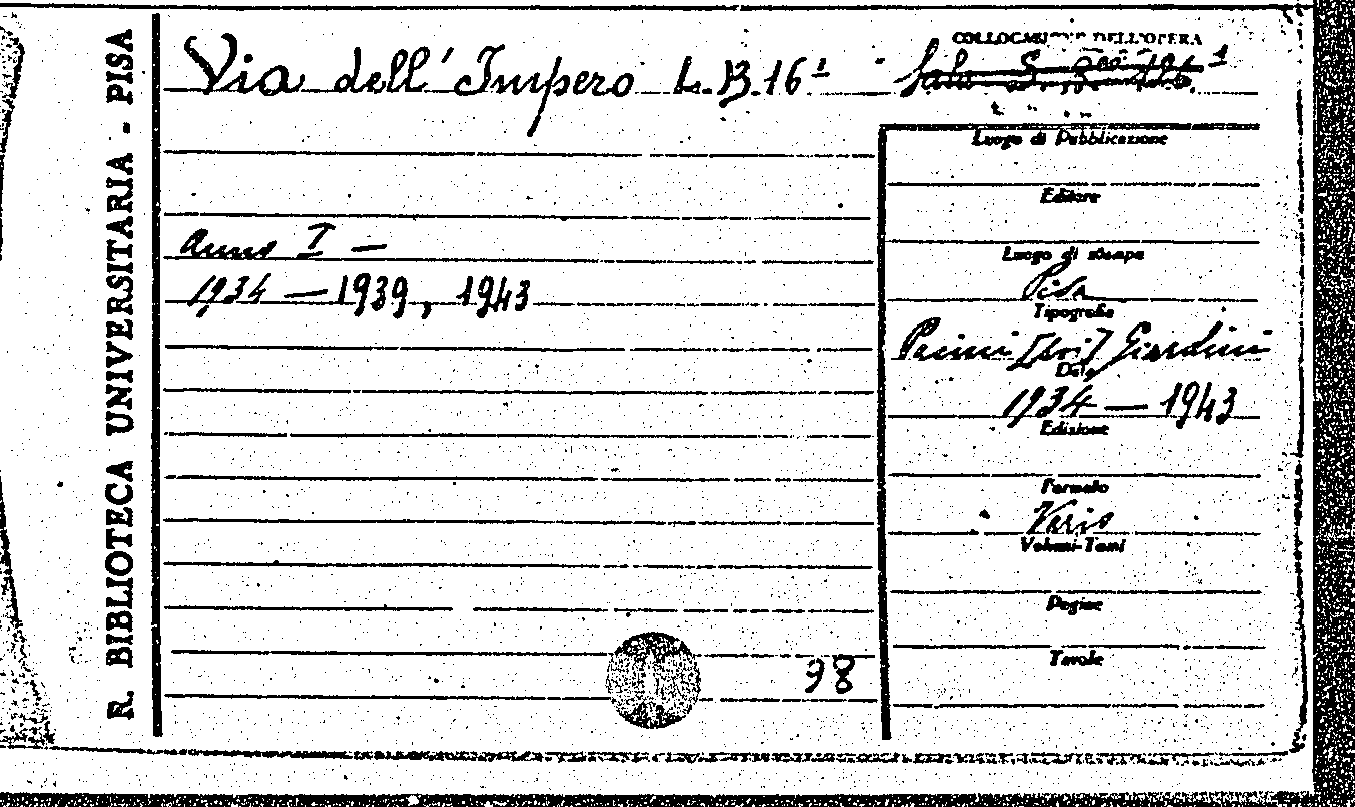 R. BIBLIOTECA UNIVERSITARIA - PISA
Via dell'Impero L.B.16¹
COLLOCAZIONE DELL'OPERA
Sala S.
Luogo di Pubblicazione
Editore
Anno I —
Luogo di stampa
1934 — 1939, 1943
Pisa
Tipografia
Giardini
Data
1934 — 1943
Edizione
Formato
Vario
Volumi-Tomi
Pagine
Tavole
38